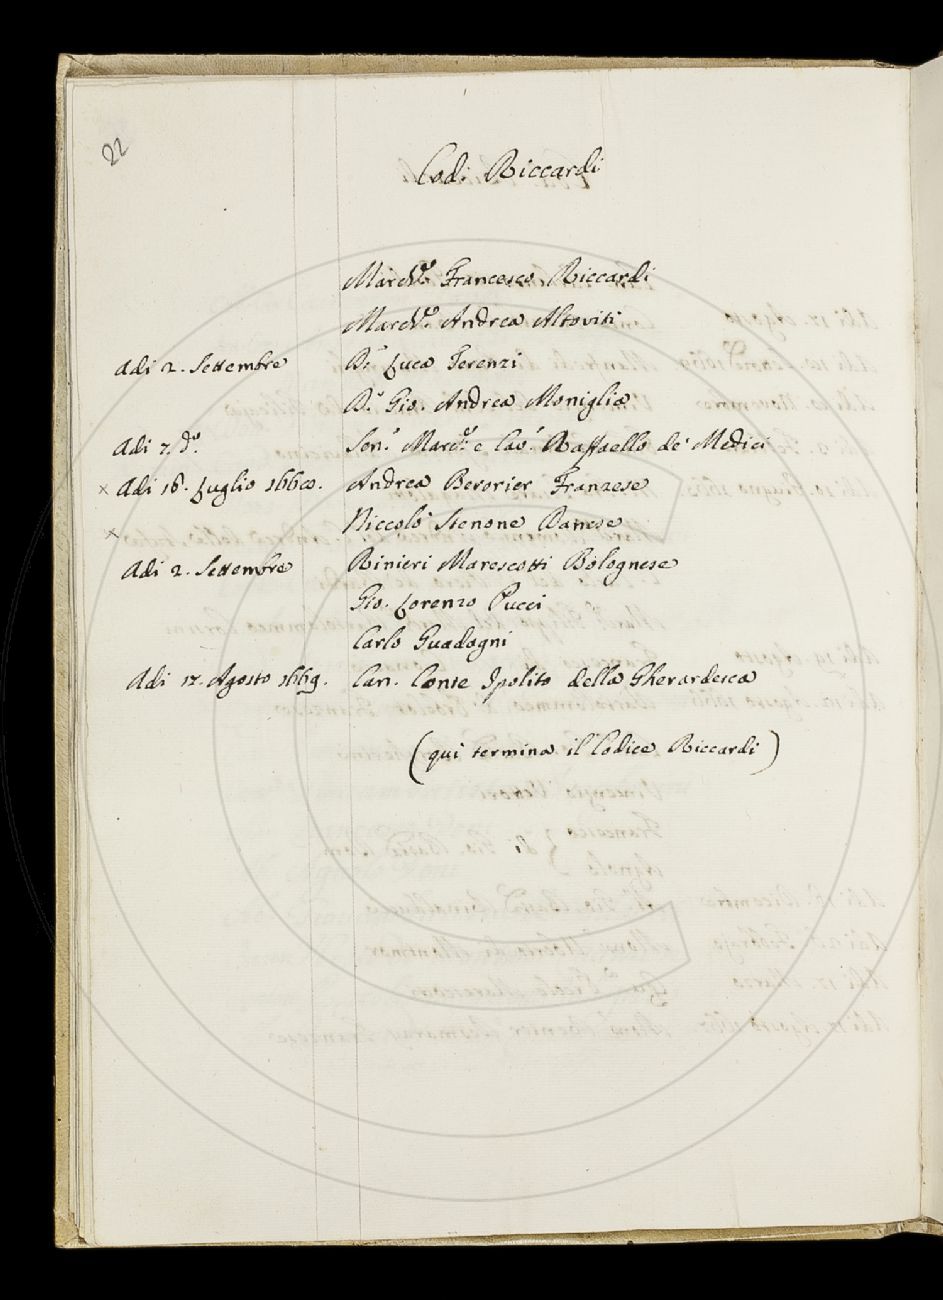 22
Codi. Riccardi
March.e Francesco Riccardi
March.e Andrea Altoviti
Adi 2. Settembre D.r Luca Terenzi
D.r Gio. Andrea Moniglia
Adi 7. d.o Sen.r March.e e Cav.r Raffaello de' Medici
x Adi 18. Luglio Andrea Berorier Franzese
x Niccolò Stenone Danese
Adi 2. Settembre Rinieri Marescotti Bolognese
Gio. Lorenzo Pucci
Carlo Guadagni
Adi 17. Agosto 1669. Can. Conte Ipolito della Gherardesca
(qui termina il Codice Riccardi)